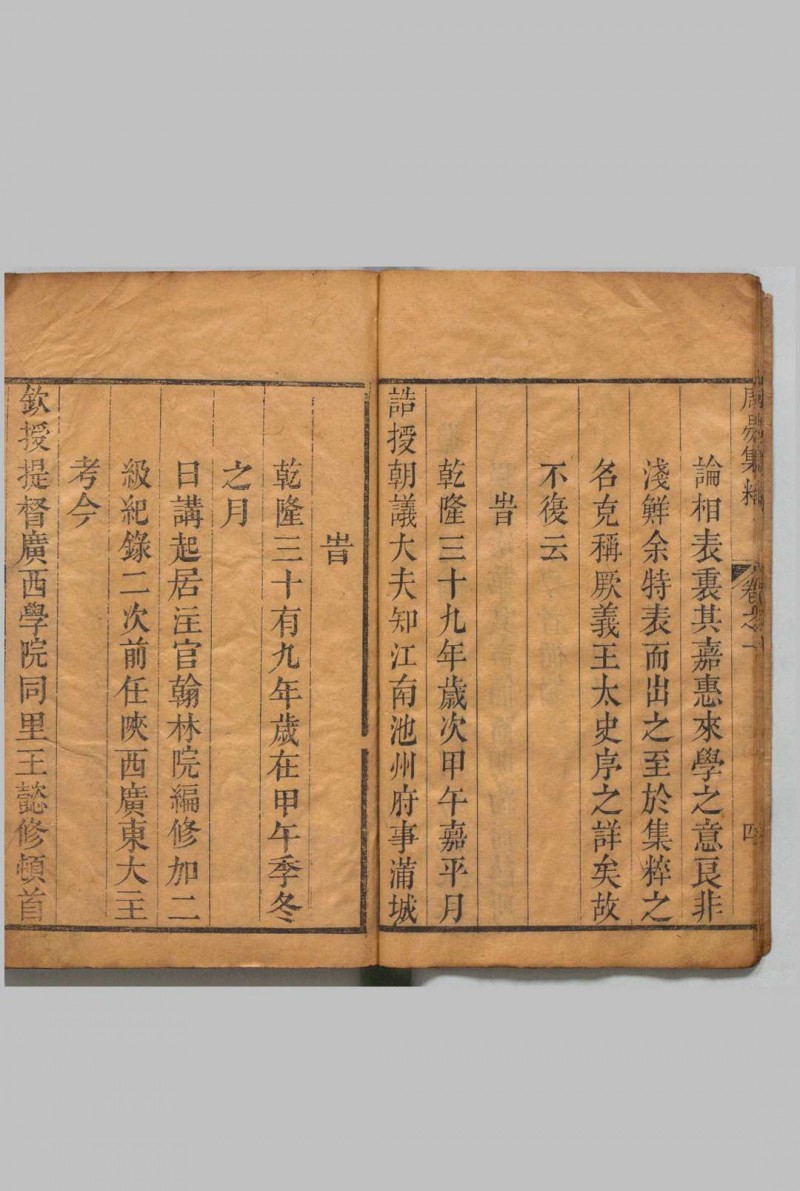 周易集粹
卷之一
四
論相表裏其嘉惠來學之意良非
淺鮮余特表而出之至於集粹之
名克稱厥義王太史序之詳矣故
不復云
旹
乾隆三十九年歲次甲午嘉平月
誥授朝議大夫知江南池州府事蒲城
旹
乾隆三十有九年歲在甲午季冬
之月
日講起居注官翰林院編修加二
級紀錄二次前任陜西廣東大主
考今
欽授提督廣西學院同里王懿修頓首